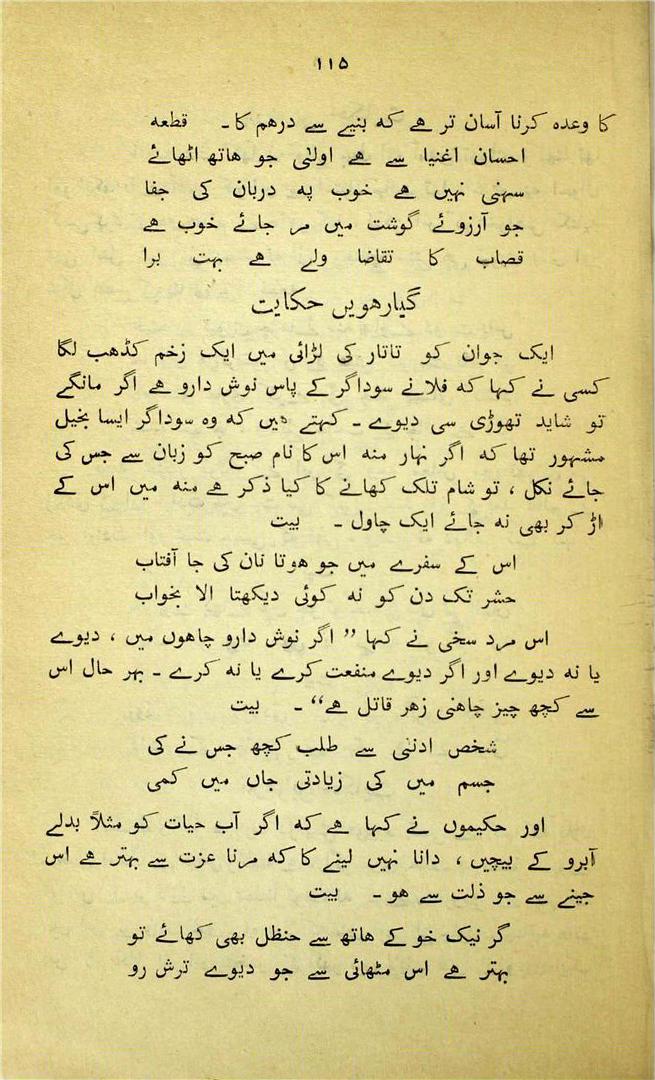 ۱۱۵
کا وعدہ کرنا آسان تر ہے کہ بنیے سے درہم کا ۔ قطعہ
احسان اغنیا سے ہے اولٰی جو ہاتھ اٹھائے
سہنی نہیں ہے خوب یہ دربان کی جفا
جو آرزوئے گوشت میں مر جائے خوب ہے
قصاب کا تقاضا ولے ہے بہت برا
گیارھویں حکایت
ایک جوان کو تاتار کی لڑائی میں ایک زخم کڈھب لگا
کسی نے کہا کہ فلانے سوداگر کے پاس نوش دارو ہے اگر مانگے
تو شاید تھوڑی سی دیوے ۔ کہتے ہیں کہ وہ سوداگر ایسا بخیل
مشہور تھا کہ اگر نہار منہ اس کا نام صبح کو زبان سے جس کی
جائے نکل ، تو شام تلک کھانے کا کیا ذکر ہے منہ میں اس کے
اڑ کر بھی نہ جائے ایک چاول ۔ بیت
اس کے سفرے میں جو ہوتا نان کی جا آفتاب
حشر تک دن کو نہ کوئی دیکھتا الا بخواب
اس مرد سخی نے کہا ” اگر نوش دارو چاہوں میں ، دیوے
یا نہ دیوے اور اگر دیوے منفعت کرے یا نہ کرے ۔ بہر حال اس
سے کچھ چیز چاہنی زہر قاتل ہے “ ۔ بیت
شخص ادنٰی سے طلب کچھ جس نے کی
جسم میں کی زیادتی جاں میں کمی
اور حکیموں نے کہا ہے کہ اگر آب حیات کو مثلاً بدلے
آبرو کے بیچیں ، دانا نہیں لینے کا کہ مرنا عزت سے بہتر ہے اس
جینے سے جو ذلت سے ہو ۔ بیت
گر نیک خو کے ہاتھ سے حنظل بھی کھائے تو
بہتر ہے اس مٹھائی سے جو دیوے ترش رو